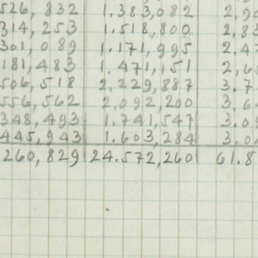 526,832 1.383,082 2,90
314,253 1.518,800 2,83
301,089 1.171,995 2.47
181,483 1.471,151 2,6
506,518 2.229,887 3.7
556,562 2,092,200 3,6
348,493 1.741,547 3,09
445,943 1.603,284 3,0
260,829 24.572,260 61.8